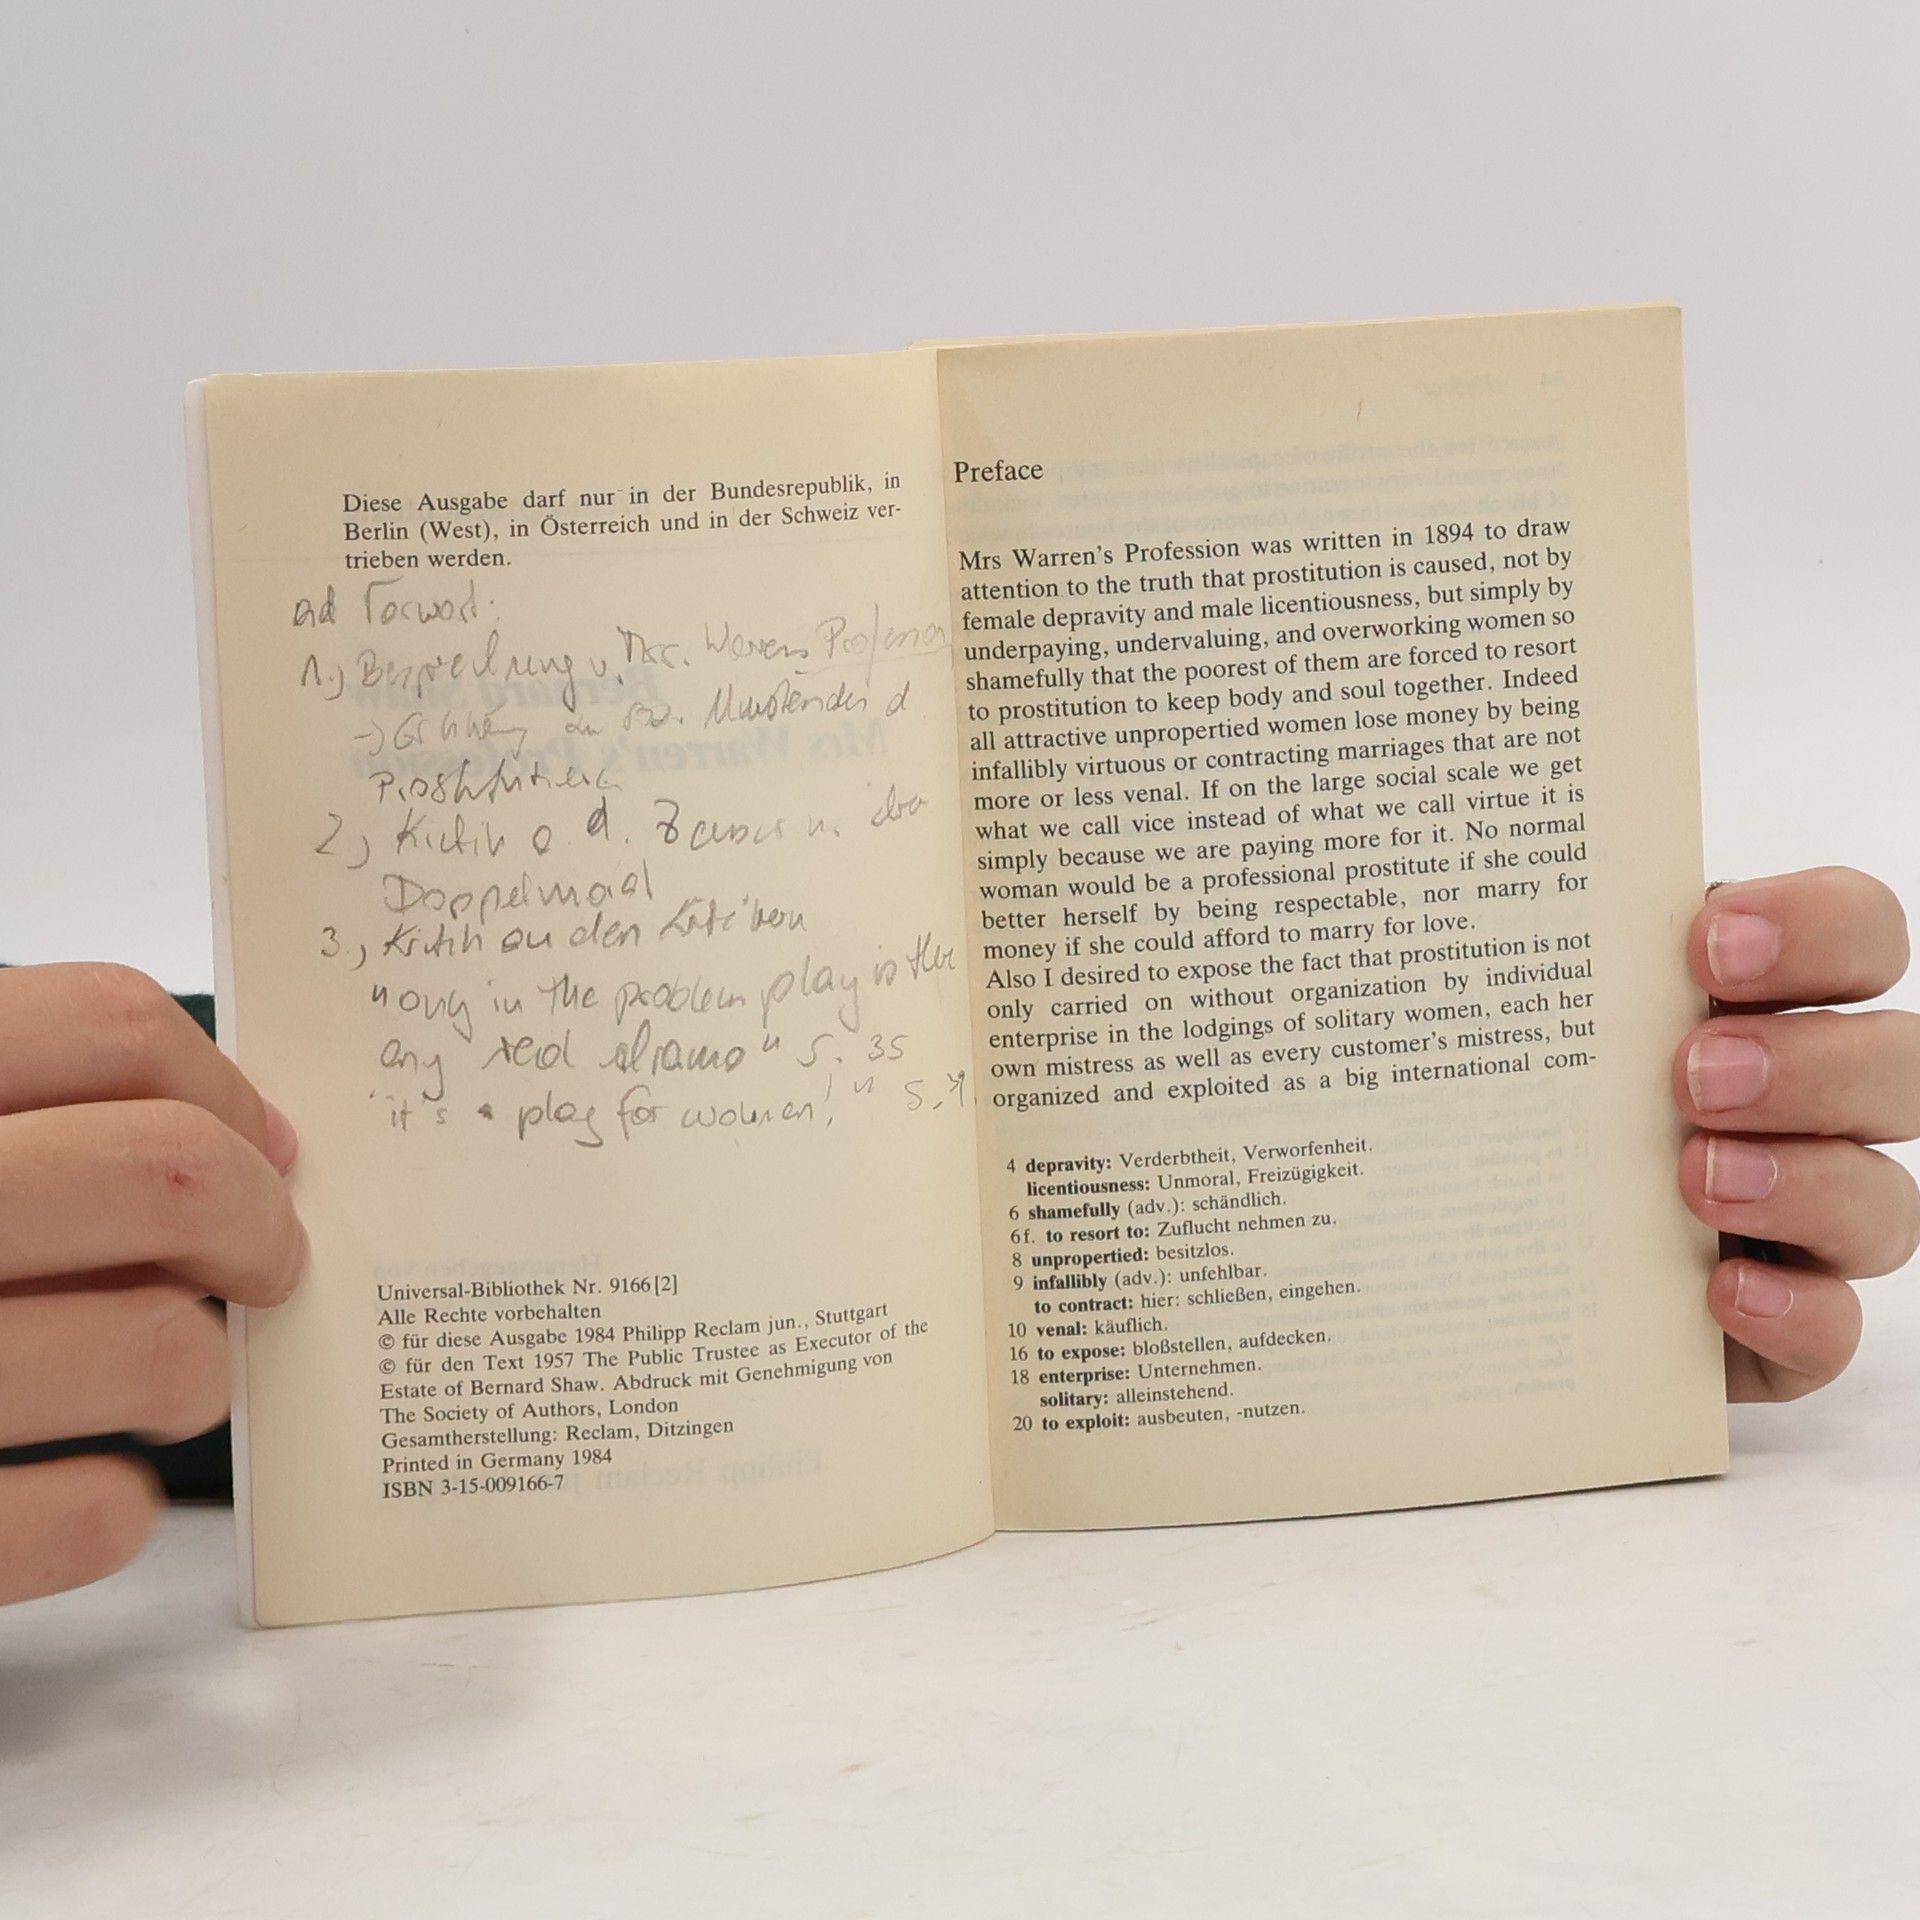 Diese Ausgabe darf nur in der Bundesrepublik, in
Berlin (West), in Österreich und in der Schweiz ver-
trieben werden.
ad Vorwort:
1.) Besprechung v. Mrs. Warrens Profession
Prostitution
2) Kritik a. d. Zensur u.
Doppelmoral
3.) Kritik an den Kritikern
"only in the problem play is there
any real drama" S. 35
"it's a play for women!" S.
Universal-Bibliothek Nr. 9166[2]
Alle Rechte vorbehalten
© für diese Ausgabe 1984 Philipp Reclam jun., Stuttgart
© für den Text 1957 The Public Trustee as Executor of the
Estate of Bernard Shaw. Abdruck mit Genehmigung von
The Society of Authors, London
Gesamtherstellung: Reclam, Ditzingen
Printed in Germany 1984
ISBN 3-15-009166-7
Preface
Mrs Warren's Profession was written in 1894 to draw
attention to the truth that prostitution is caused, not by
female depravity and male licentiousness, but simply by
underpaying, undervaluing, and overworking women so
shamefully that the poorest of them are forced to resort
to prostitution to keep body and soul together. Indeed
all attractive unpropertied women lose money by being
infallibly virtuous or contracting marriages that are not
more or less venal. If on the large social scale we get
what we call vice instead of what we call virtue it is
simply because we are paying more for it. No normal
woman would be a professional prostitute if she could
better herself by being respectable, nor marry for
money if she could afford to marry for love.
Also I desired to expose the fact that prostitution is not
only carried on without organization by individual
enterprise in the lodgings of solitary women, each her
own mistress as well as every customer's mistress, but
organized and exploited as a big international com-
4 depravity: Verderbtheit, Verworfenheit.
licentiousness: Unmoral, Freizügigkeit.
6 shamefully (adv.): schändlich.
6f. to resort to: Zuflucht nehmen zu.
8 unpropertied: besitzlos.
9 infallibly (adv.): unfehlbar.
to contract: hier: schließen, eingehen.
10 venal: käuflich.
16 to expose: bloßstellen, aufdecken.
18 enterprise: Unternehmen.
solitary: alleinstehend.
20 to exploit: ausbeuten, -nutzen.